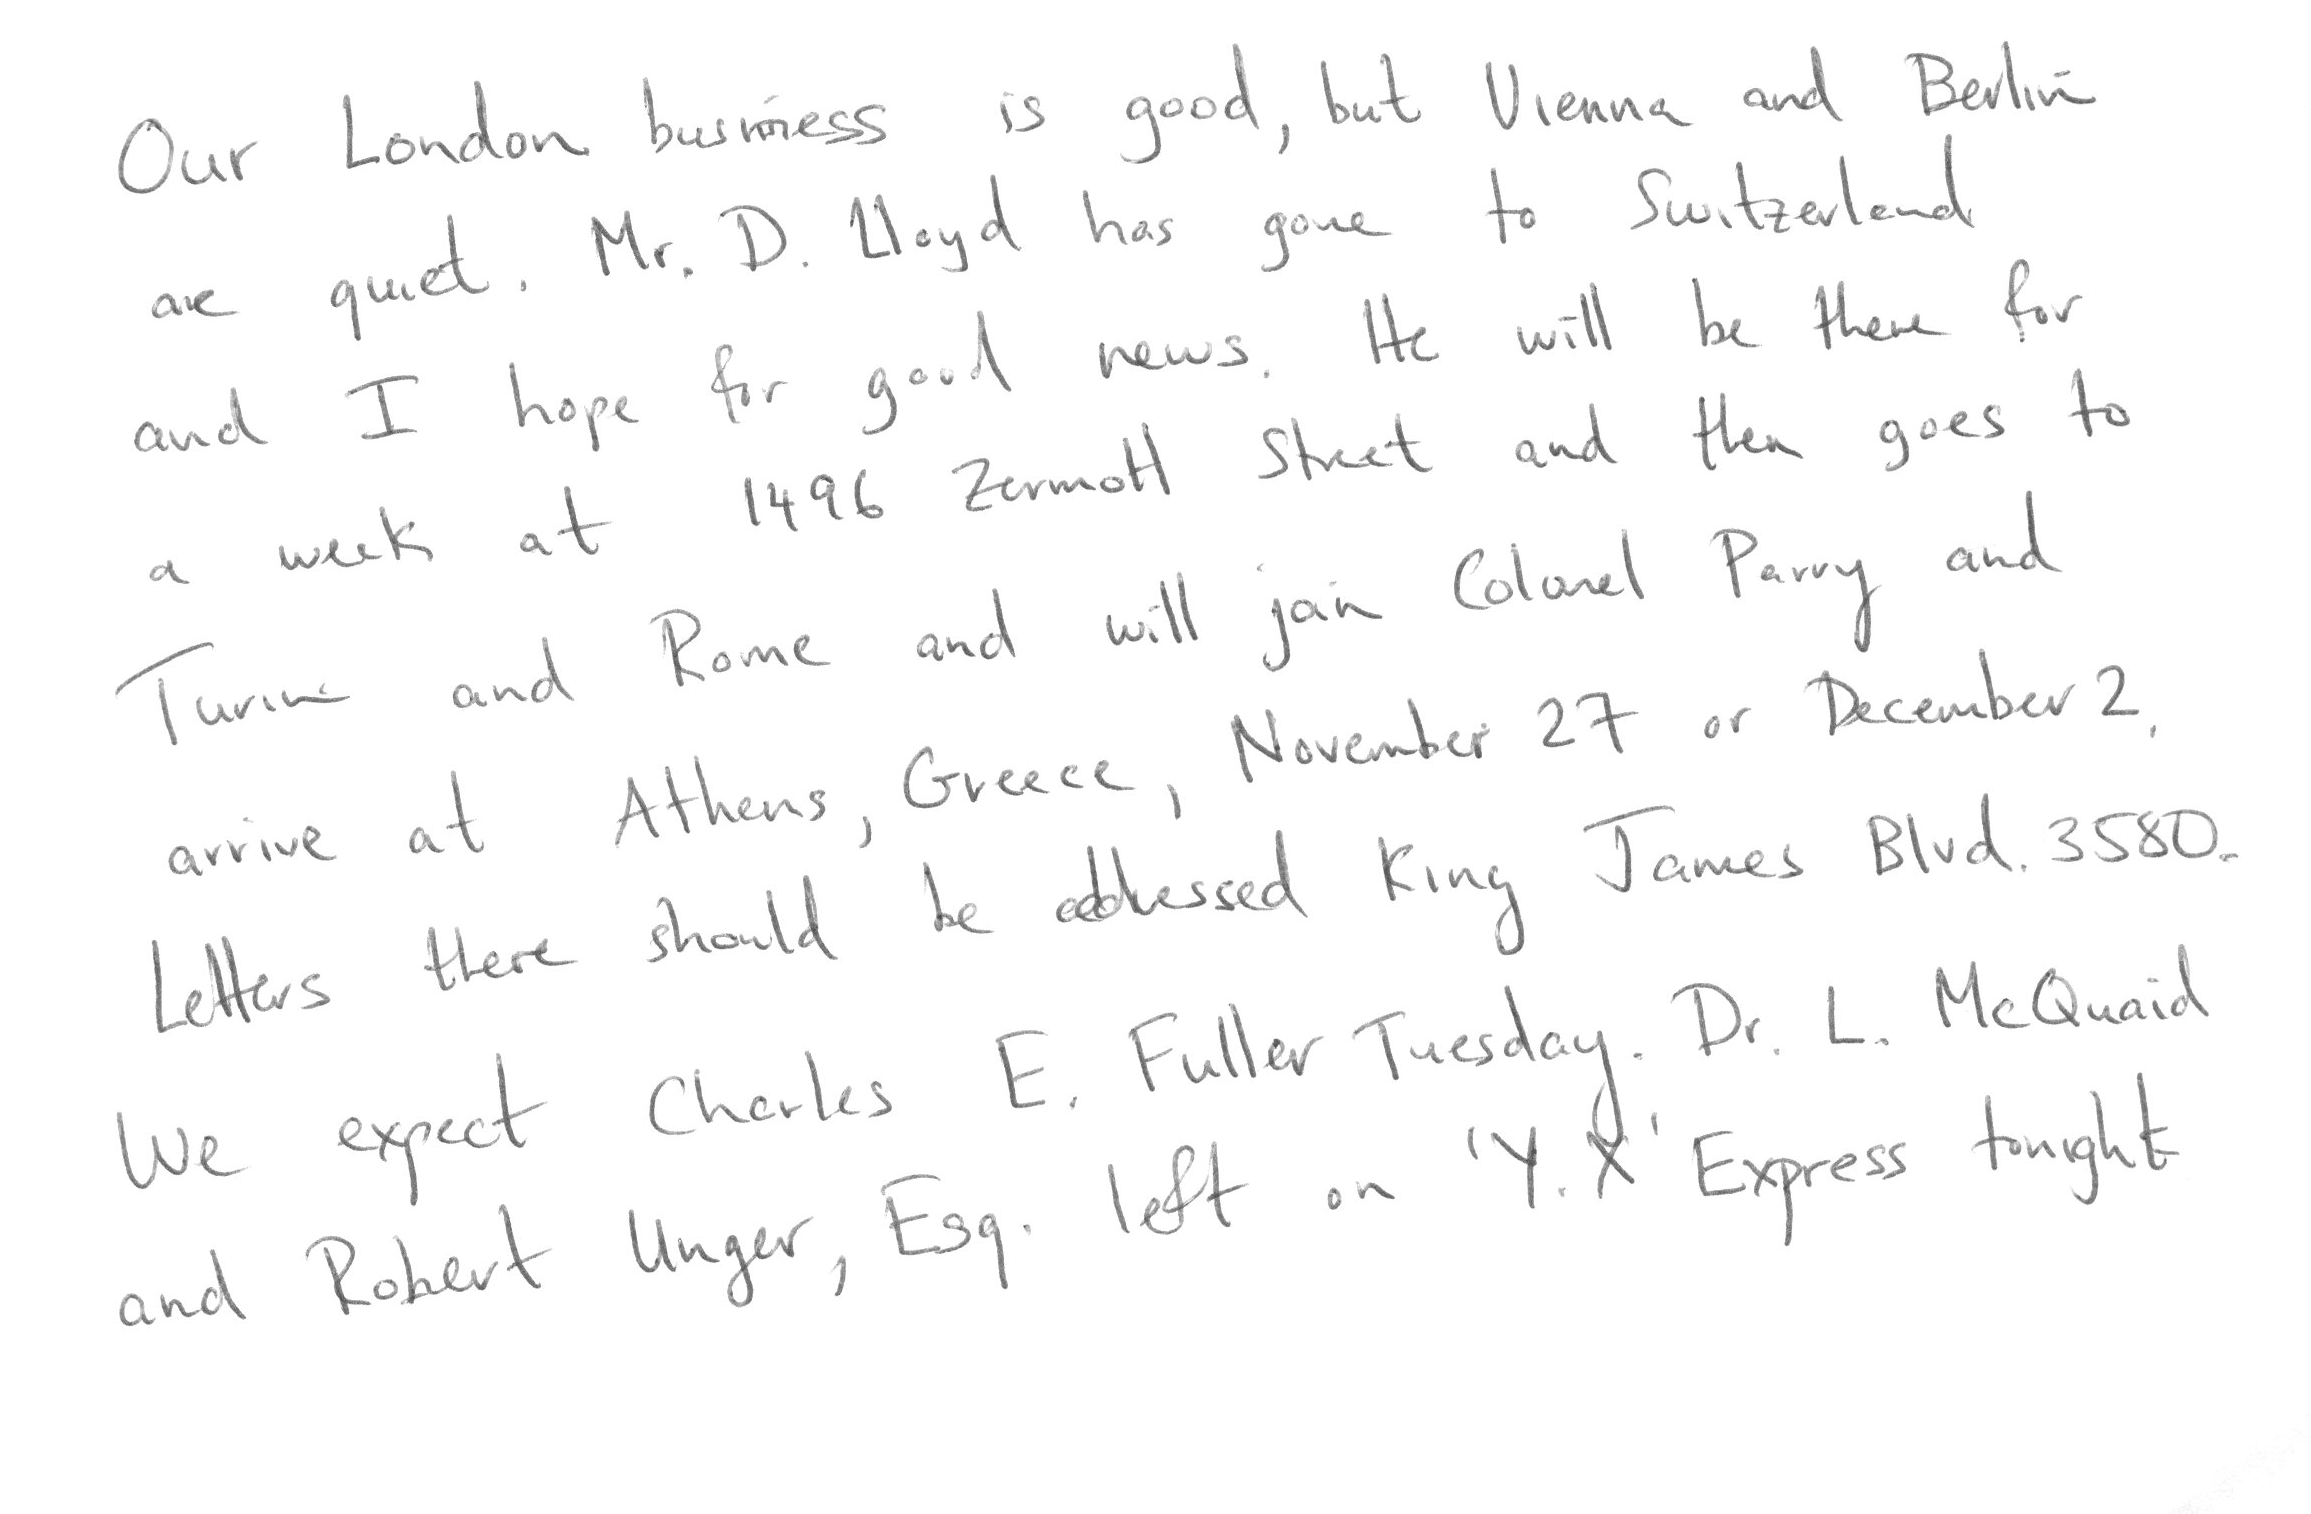 Our London business is good, but Vienna and Berlin
are quiet. Mr. D. Lloyd has gone to Switzerland
and I hope for good news. He will be there for
a week at 1496 Zermott Street and then goes to
Turin and Rome and will join Colonel Parry and
arrive at Athens, Greece, November 27 or December 2.
Letters there should be addressed King James Blvd. 3580.
We expect Charles E. Fuller Tuesday. Dr. L. McQuaid
and Robert Unger, Esq. left on 'Y.X' Express tonight